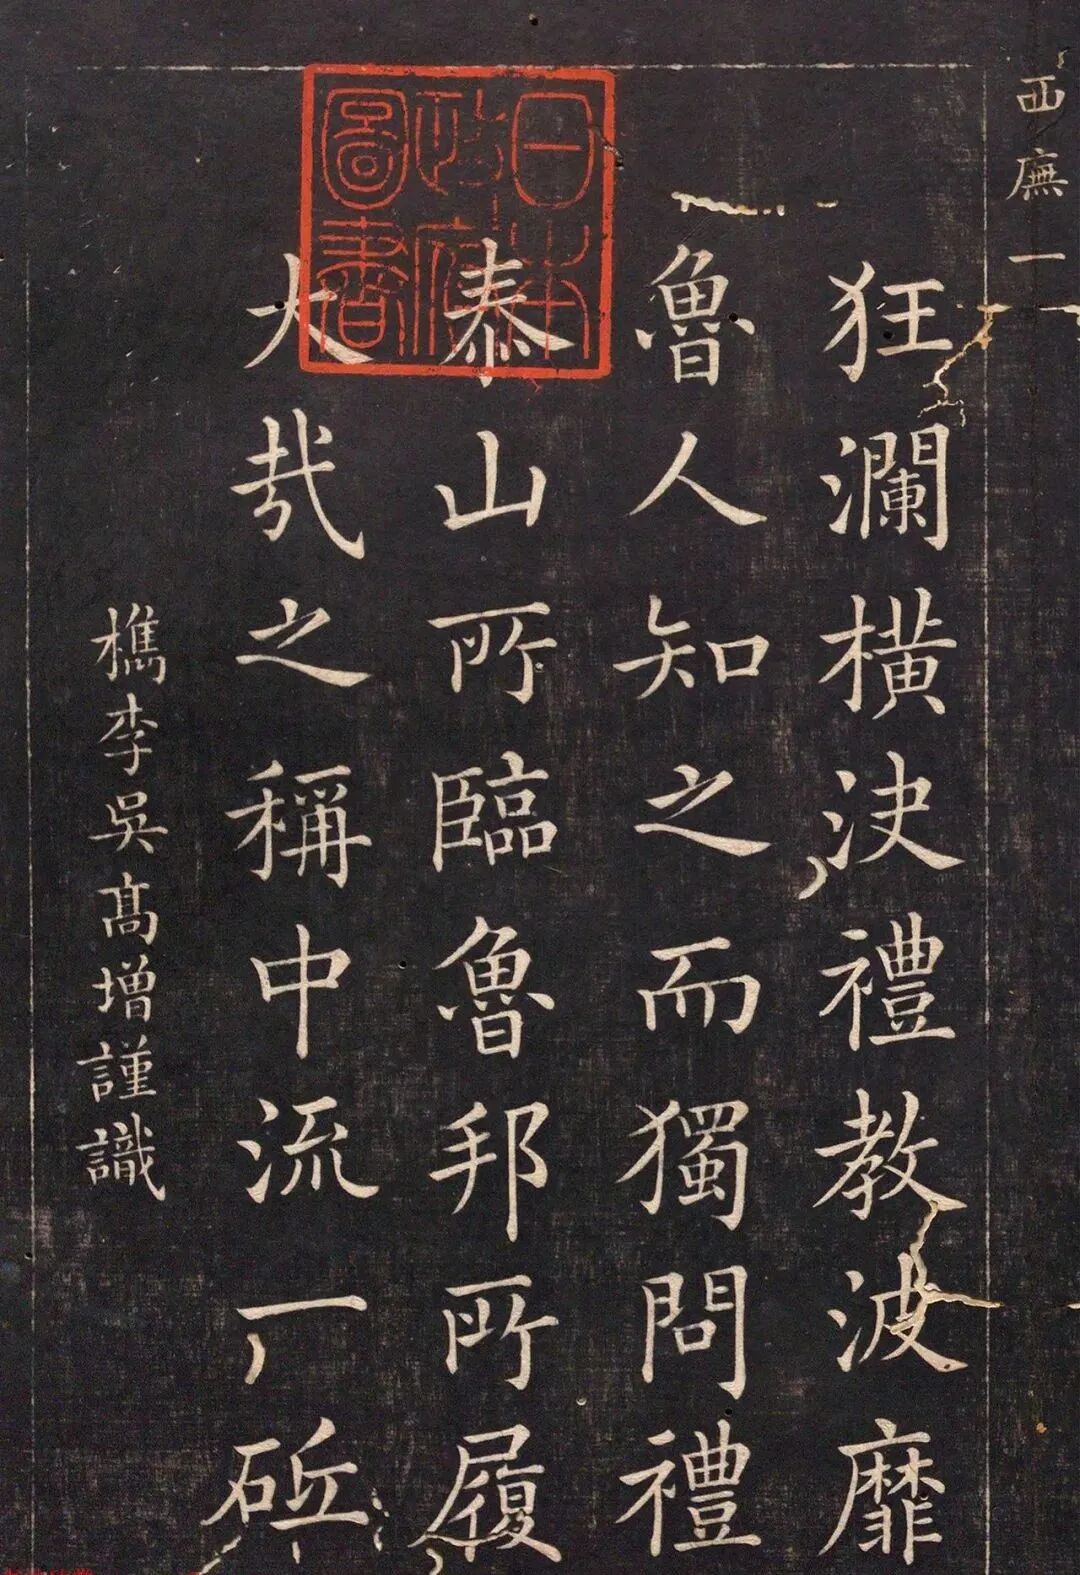 西廡一
狂瀾橫決禮教波靡
魯人知之而獨問禮
泰山所臨魯邦所履
大哉之稱中流一砥
檇李吳高增謹識
日本政府圖書